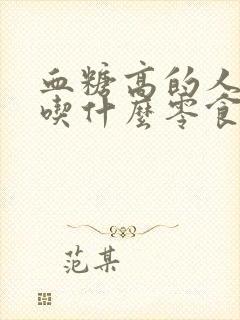 血糖高的人
喫什麼零食
范某